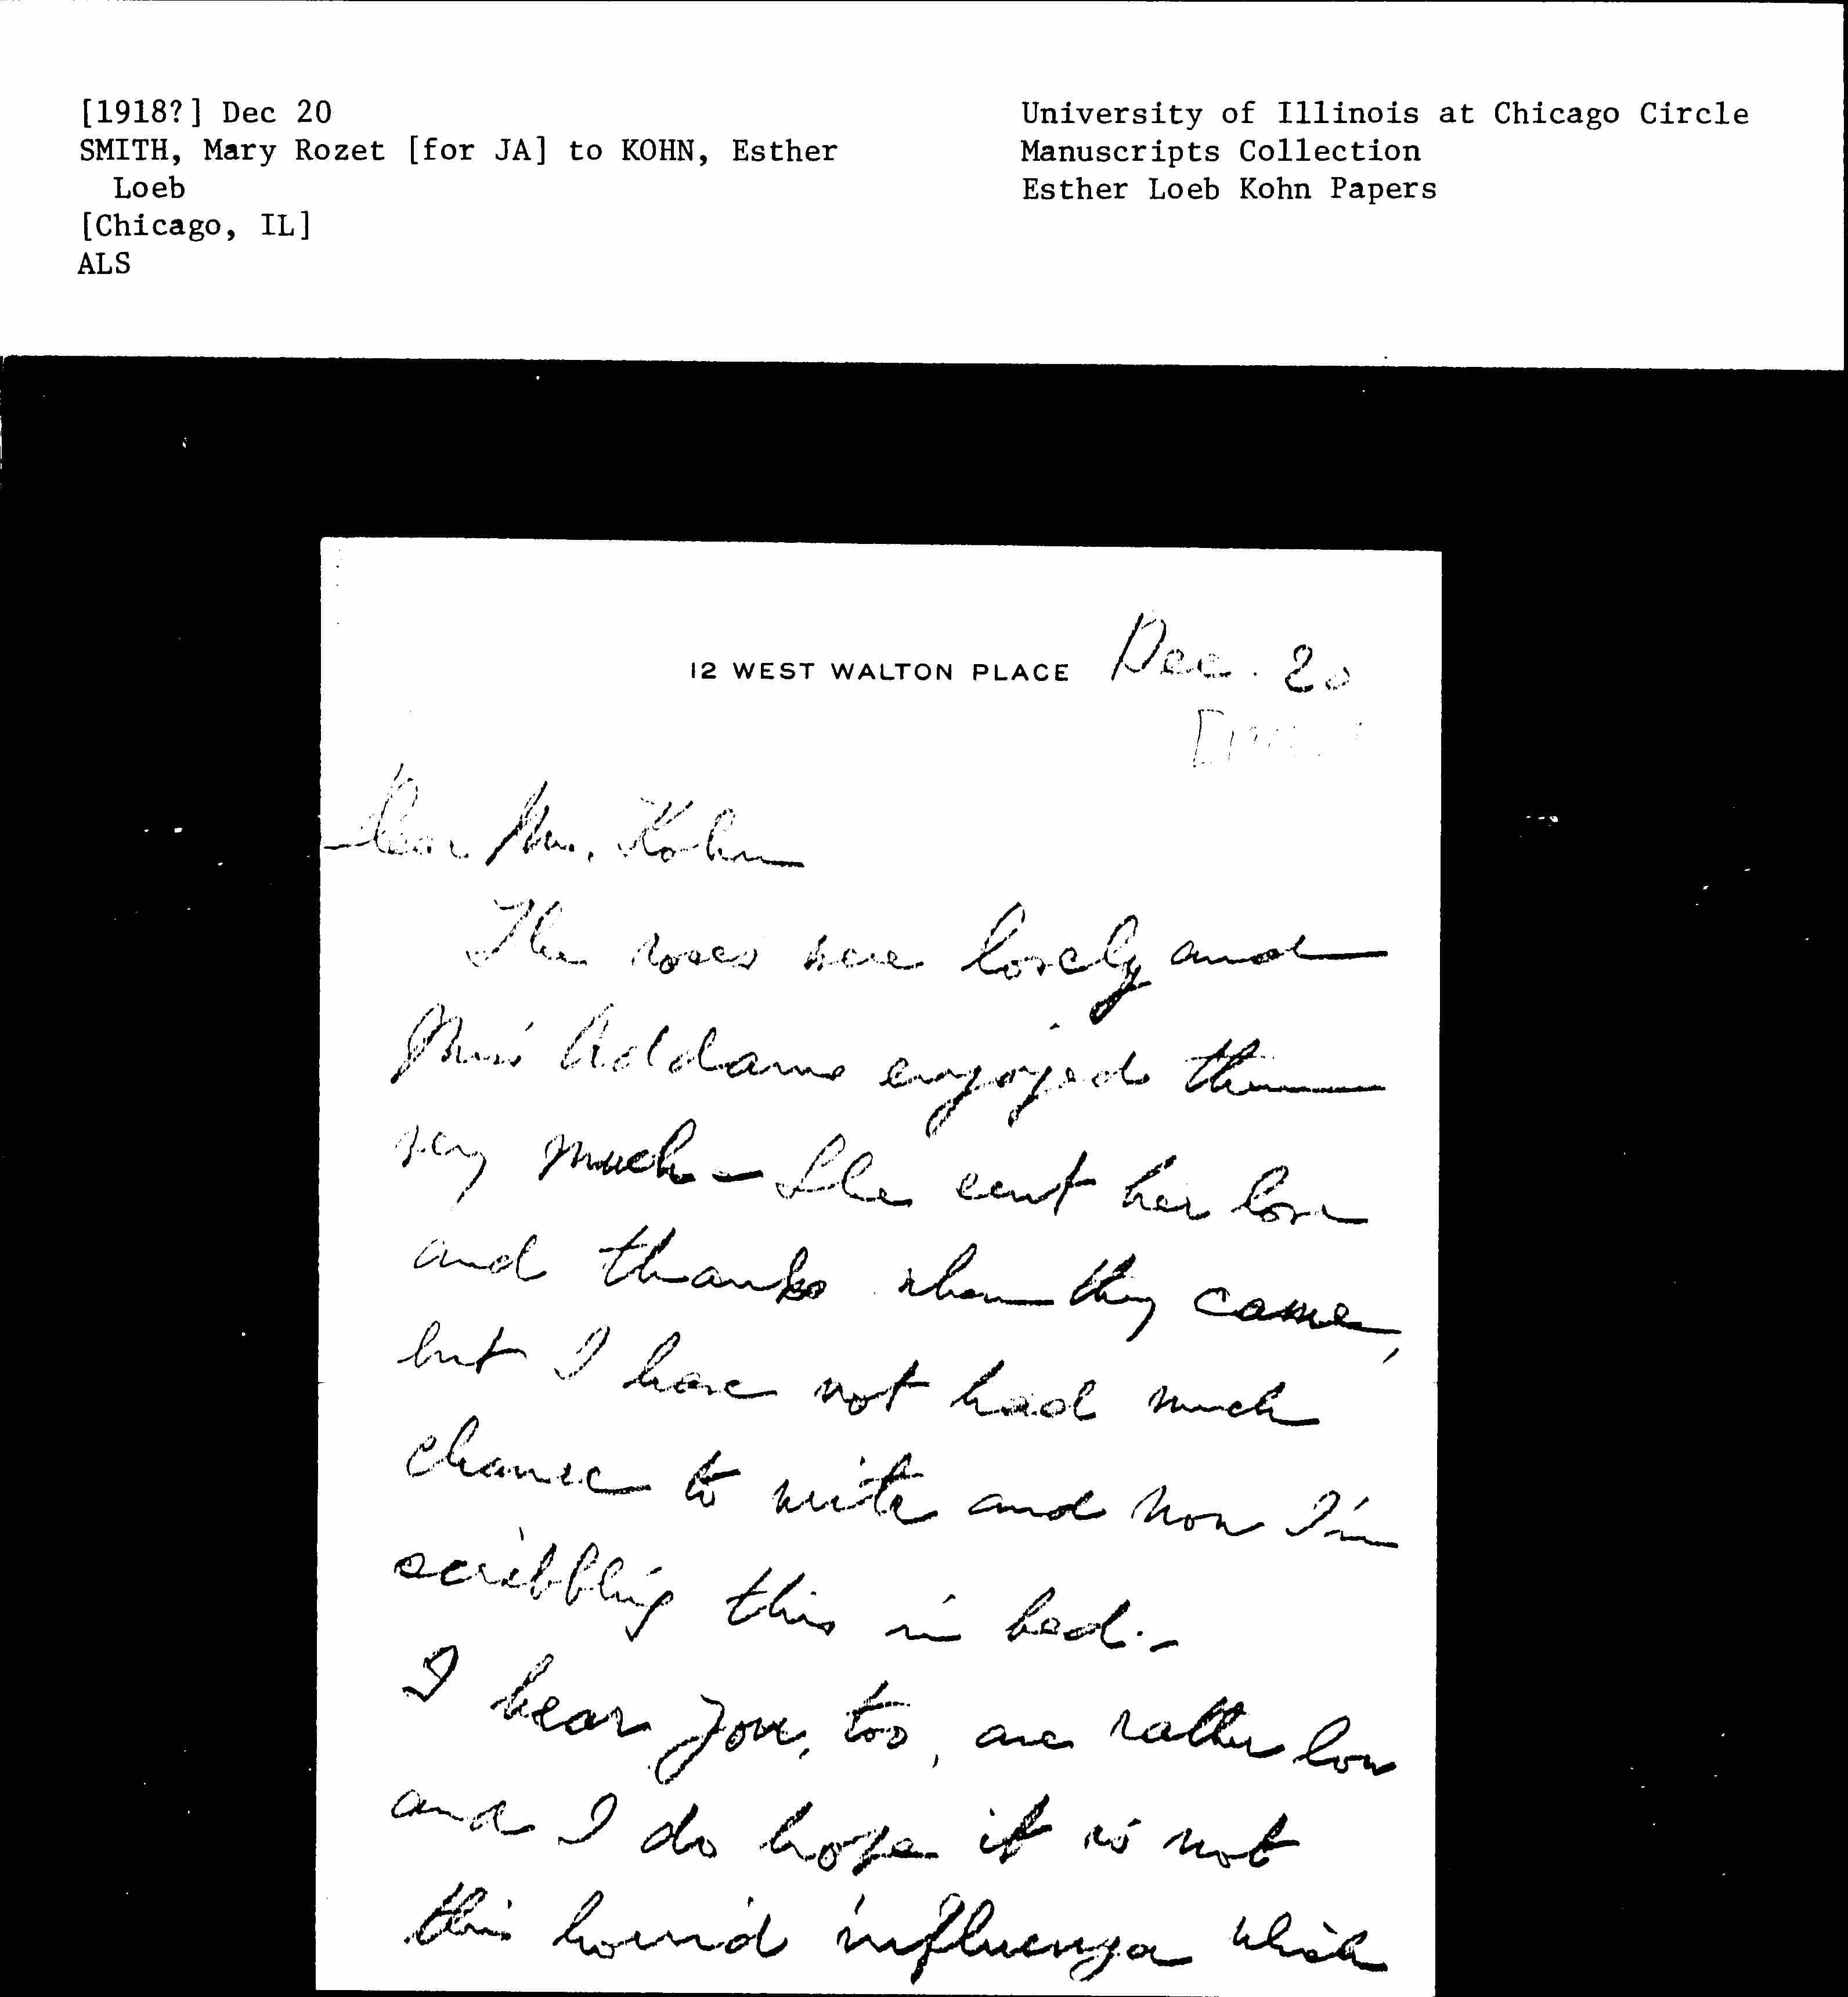 [1918?] Dec 20
SMITH, Mary Rozet [for JA] to KOHN, Esther
Loeb
[Chicago, IL]
ALS
University of Illinois at Chicago Circle
Manuscripts Collection
Esther Loeb Kohn Papers
12 WEST WALTON PLACE Dec. 20
Dear Mrs. Kohn
The roses were lovely and
Miss Addams enjoyed them
very much – She sent her love
and thanks when they came,
but I have not had much
chance to write and now I'm
scribbling this in bed. –
I hear you, too, are rather low
and I do hope it is not
this horrid influenza which